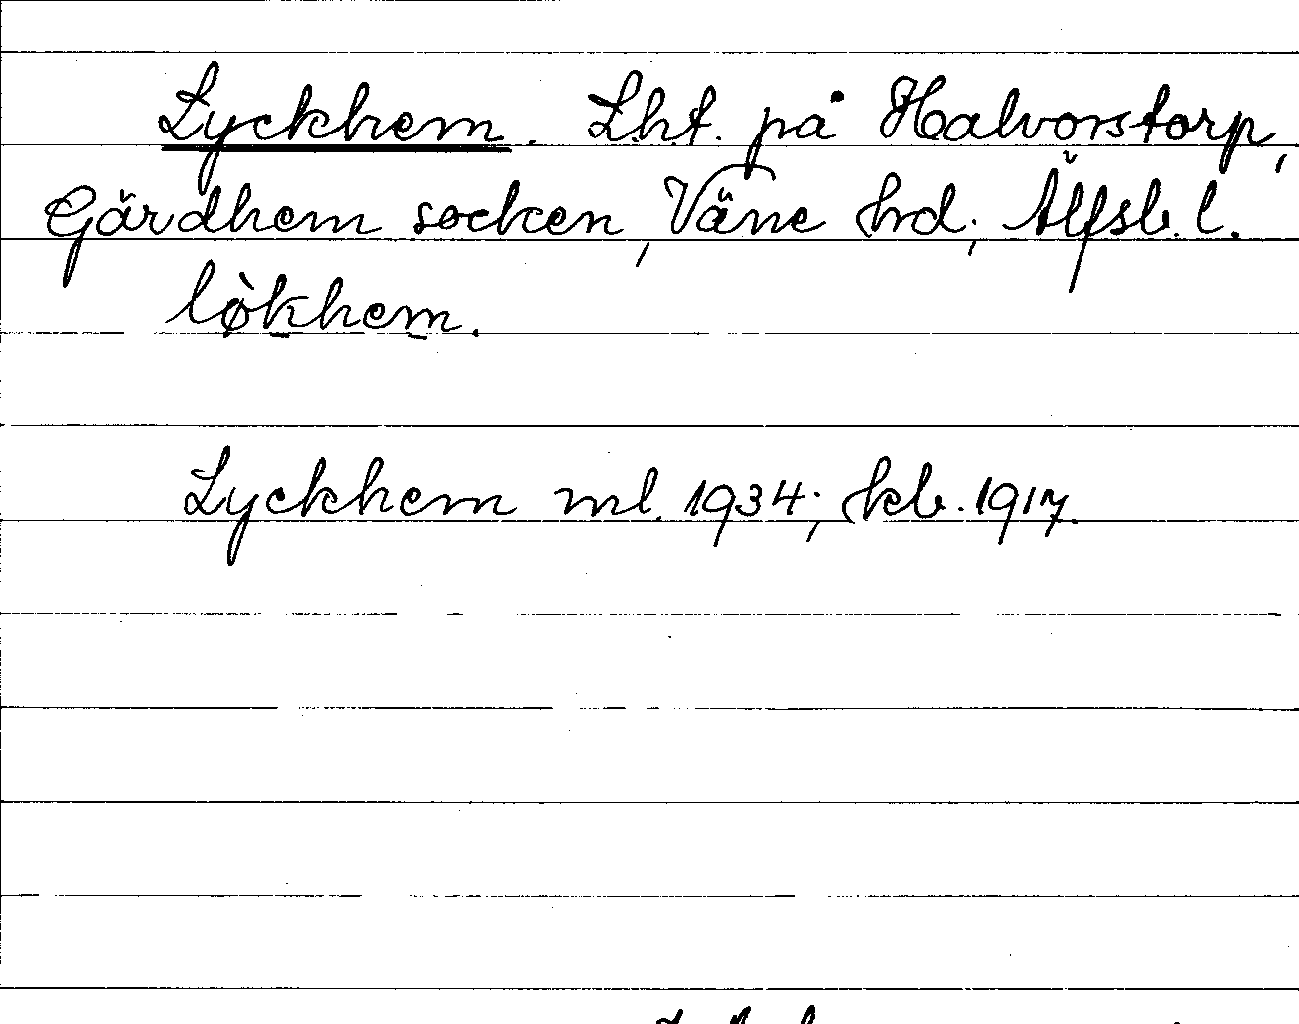 Lyckhem. Lht. på Halvorstorp,
Gärdhem socken, Väne hd; Älfsb. l.
lø̀khem.
Lyckhem ml. 1934; kb. 1917.